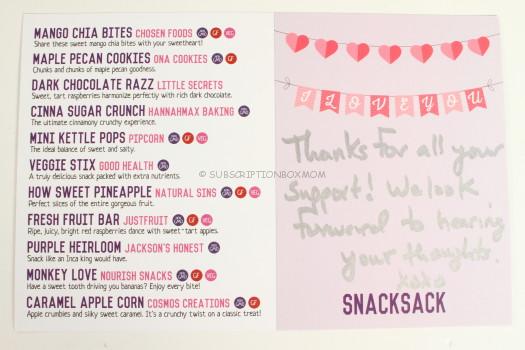 MANGO CHIA BITES CHOSEN FOODS GF VEG
Share these sweet mango chia bites with your sweetheart!
MAPLE PECAN COOKIES ONA COOKIES GF
Chunks and chunks of maple pecan goodness.
DARK CHOCOLATE RAZZ LITTLE SECRETS
Sweet, tart raspberries harmonize perfectly with rich dark chocolate.
CINNA SUGAR CRUNCH HANNAHMAX BAKING
The ultimate cinnamony crunchy experience.
MINI KETTLE POPS PIPCORN GF VEG
The ideal balance of sweet and salty.
VEGGIE STIX GOOD HEALTH
A truly delicious snack packed with extra nutrients.
HOW SWEET PINEAPPLE NATURAL SINS GF VEG
Perfect slices of the entire gorgeous fruit.
FRESH FRUIT BAR JUSTFRUIT GF VEG
Ripe, juicy, bright red raspberries dance with sweet-tart apples.
PURPLE HEIRLOOM JACKSON'S HONEST
Snack like an Inca king would have.
MONKEY LOVE NOURISH SNACKS GF VEG
Have a sweet tooth driving you bananas? Enjoy every bite!
CARAMEL APPLE CORN COSMOS CREATIONS GF
Apple crumbies and silky sweet caramel. It's a crunchy twist on a classic treat!
I LOVE YOU
Thanks for all your
support! We look
forward to hearing
your thoughts.
xoxo
SNACKSACK
© SUBSCRIPTIONBOXMOM